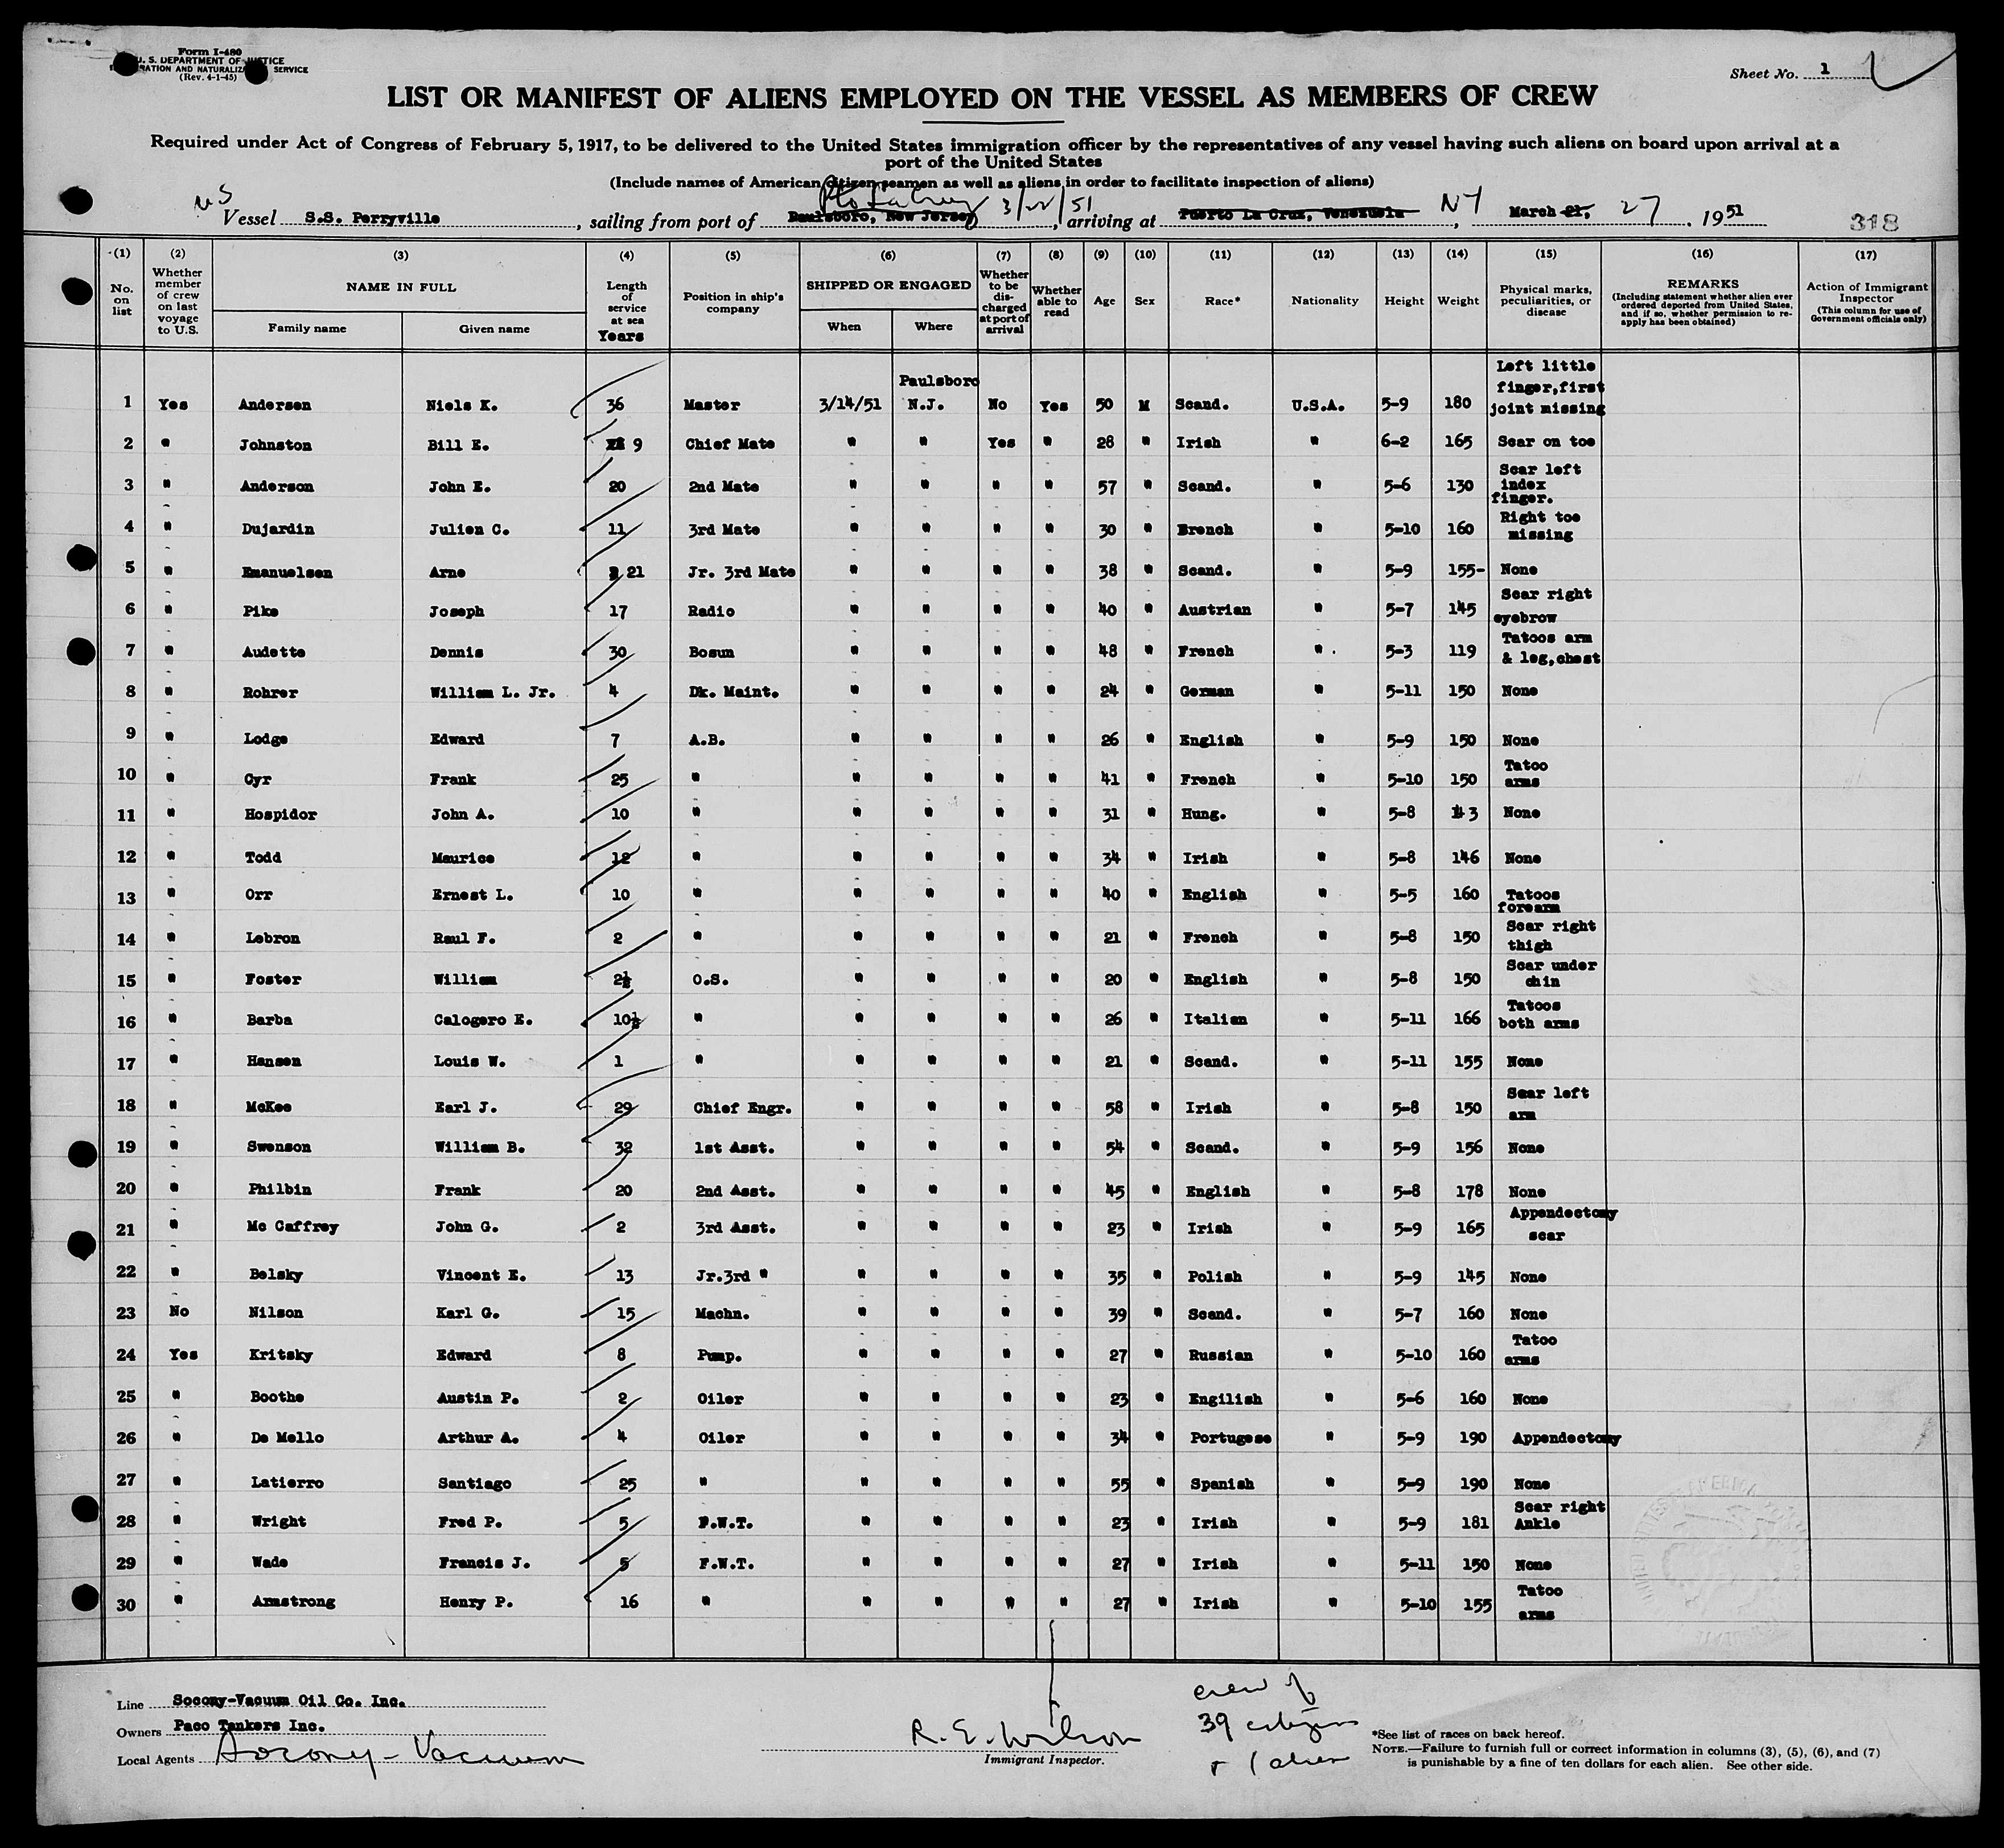 Form I-480
U. S. DEPARTMENT OF JUSTICE
IMMIGRATION AND NATURALIZATION SERVICE
(Rev. 4-1-45)
Sheet No. 1
LIST OR MANIFEST OF ALIENS EMPLOYED ON THE VESSEL AS MEMBERS OF CREW
Required under Act of Congress of February 5, 1917, to be delivered to the United States immigration officer by the representatives of any vessel having such aliens on board upon arrival at a
port of the United States
(Include names of American citizen seamen as well as aliens in order to facilitate inspection of aliens)
Pto La Cruz 3/22/51
Vessel S.S. Perryville, sailing from port of Paulsboro, New Jersey, arriving at Puerto La Cruz, Venezuela, NY March 21, 27, 1951 318
(1) (2) (3) (4) (5) (6) (7) (8) (9) (10) (11) (12) (13) (14) (15) (16) (17)
No. on list
Whether member of crew on last voyage to U.S.
NAME IN FULL
Family name Given name
Length of service at sea Years
Position in ship's company
SHIPPED OR ENGAGED
When Where
Whether to be discharged at port of arrival
Whether able to read
Age Sex Race* Nationality Height Weight
Physical marks, peculiarities, or disease
REMARKS
(Including statement whether alien ever ordered deported from United States, and if so, whether permission to re-apply has been obtained)
Action of Immigrant Inspector
(This column for use of Government officials only)
1 Yes Andersen Niels K. 36 Master 3/14/51 Paulsboro N.J. No Yes 50 M Scand. U.S.A. 5-9 180 Left little finger,first joint missing
2 " Johnston Bill E. 9 Chief Mate " " Yes " 28 " Irish " 6-2 165 Scar on toe
3 " Anderson John E. 20 2nd Mate " " " " 57 " Scand. " 5-6 130 Scar left index finger.
4 " Dujardin Julien C. 11 3rd Mate " " " " 30 " French " 5-10 160 Right toe missing
5 " Emanuelsen Arne 21 Jr. 3rd Mate " " " " 38 " Scand. " 5-9 155- None
6 " Pike Joseph 17 Radio " " " " 40 " Austrian " 5-7 145 Scar right eyebrow
7 " Audette Dennis 30 Bosun " " " " 48 " French " 5-3 119 Tatoos arm & leg,chest
8 " Rohrer William L. Jr. 4 Dk. Maint. " " " " 24 " German " 5-11 150 None
9 " Lodge Edward 7 A.B. " " " " 26 " English " 5-9 150 None
10 " Cyr Frank 25 " " " " " 41 " French " 5-10 150 Tatoo arms
11 " Hospidor John A. 10 " " " " " 31 " Hung. " 5-8 143 None
12 " Todd Maurice 12 " " " " " 34 " Irish " 5-8 146 None
13 " Orr Ernest L. 10 " " " " " 40 " English " 5-5 160 Tatoos forearm
14 " Lebron Raul F. 2 " " " " " 21 " French " 5-8 150 Scar right thigh
15 " Foster William 2½ O.S. " " " " 20 " English " 5-8 150 Scar under chin
16 " Barba Calogero E. 10½ " " " " " 26 " Italian " 5-11 166 Tatoos both arms
17 " Hansen Louis W. 1 " " " " " 21 " Scand. " 5-11 155 None
18 " McKee Earl J. 29 Chief Engr. " " " " 58 " Irish " 5-8 150 Scar left arm
19 " Swenson William B. 32 1st Asst. " " " " 54 " Scand. " 5-9 156 None
20 " Philbin Frank 20 2nd Asst. " " " " 45 " English " 5-8 178 None
21 " Mc Caffrey John G. 2 3rd Asst. " " " " 23 " Irish " 5-9 165 Appendectomy scar
22 " Belsky Vincent E. 13 Jr.3rd " " " " " 35 " Polish " 5-9 145 None
23 No Nilson Karl G. 15 Machn. " " " " 39 " Scand. " 5-7 160 None
24 Yes Kritsky Edward 8 Pump. " " " " 27 " Russian " 5-10 160 Tatoo arms
25 " Boothe Austin P. 2 Oiler " " " " 23 " Engilish " 5-6 160 None
26 " De Mello Arthur A. 4 Oiler " " " " 34 " Portugese " 5-9 190 Appendectomy
27 " Latierro Santiago 25 " " " " " 55 " Spanish " 5-9 190 None
28 " Wright Fred P. 5 F.W.T. " " " " 23 " Irish " 5-9 181 Scar right Ankle
29 " Wade Francis J. 5 F.W.T. " " " " 27 " Irish " 5-11 150 None
30 " Armstrong Henry P. 16 " " " " " 27 " Irish " 5-10 155 Tatoo arms
Line Socony-Vacuum Oil Co. Inc.
Owners Paco Tankers Inc.
Local Agents Socony-Vacuum
R. E. Wilson
Immigrant Inspector.
crew of
39 citizens
+ 1 alien
*See list of races on back hereof.
NOTE.—Failure to furnish full or correct information in columns (3), (5), (6), and (7)
is punishable by a fine of ten dollars for each alien. See other side.